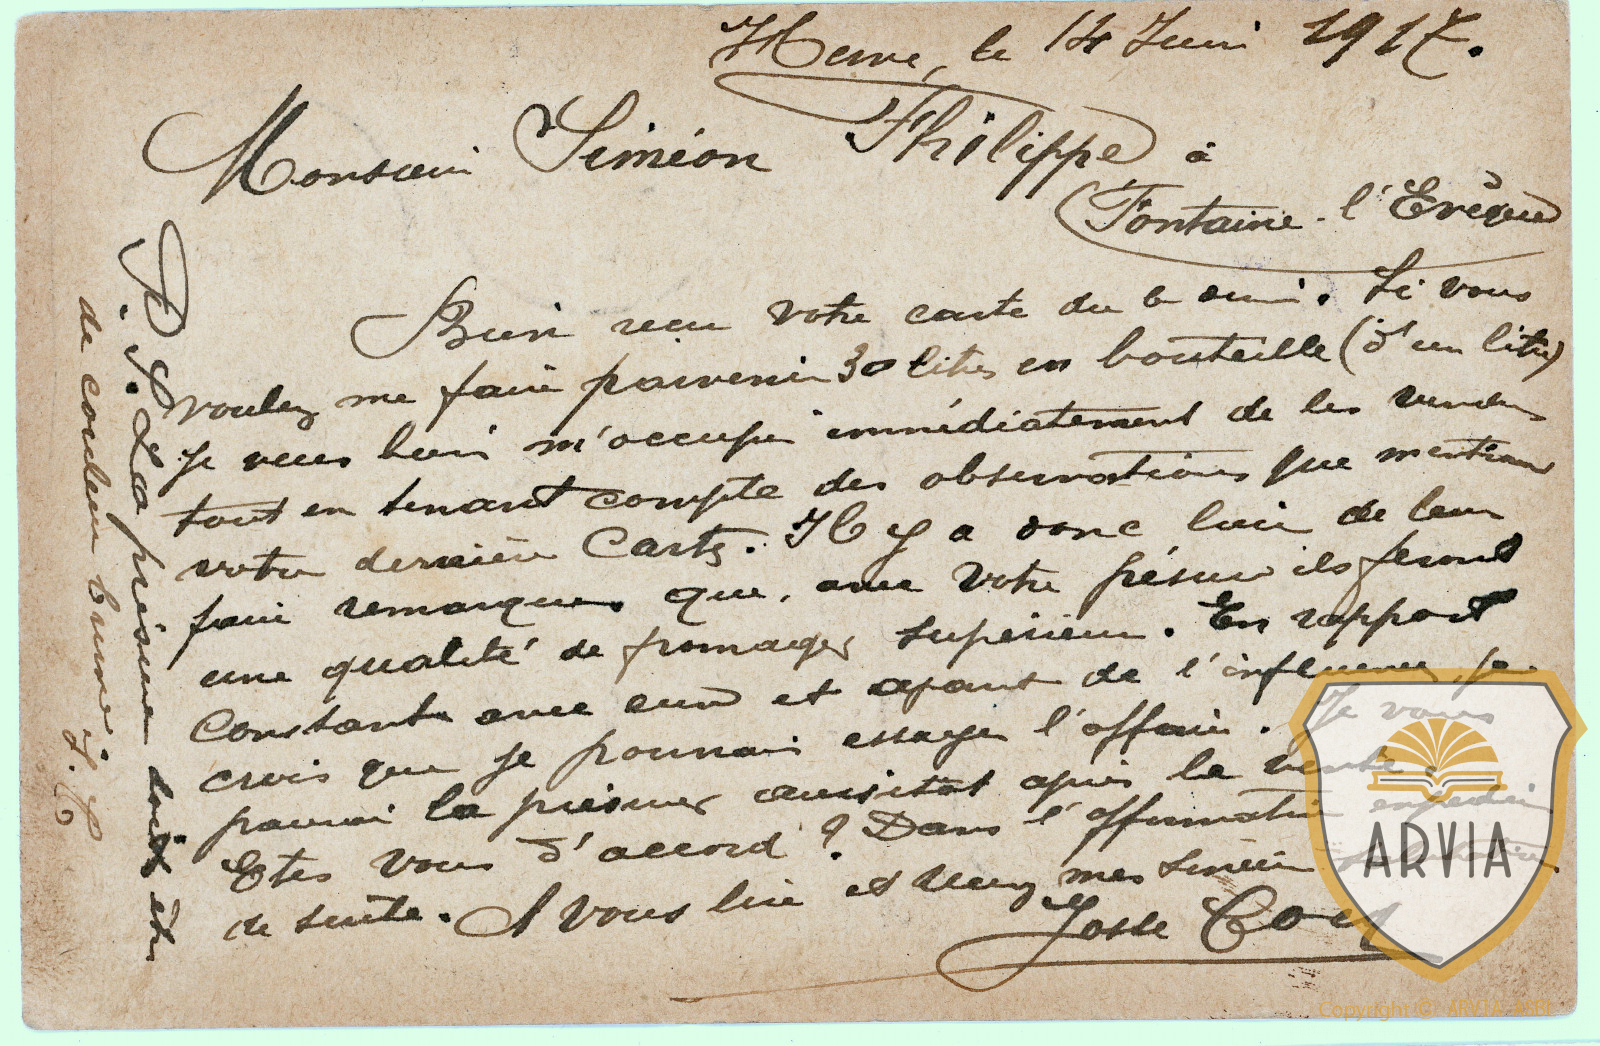 Herve, le 14 Juin 1917.
Monsieur Siméon Philippe à
Fontaine-l'Evêque
Bien reçu votre carte du 6 Juin. Si vous
voulez me faire parvenir 30 litres en bouteille (d'un litre)
je veux bien m'occuper immédiatement de les vendre
tout en tenant compte des observations que mentionne
votre dernière Carte. Il y a donc lieu de leur
faire remarquer que, avec votre présure ils feront
une qualité de fromages supérieur. En rapport
constants avec eux et ayant de l'influence, je
crois que je pourrai essayer l'affaire. Je vous
paierai la présure aussitôt après la vente.
Etes vous d'accord? Dans l'affirmative expédier
de suite. A vous lire et recevez mes sincères salutations.
Josse Cocq
P.S. La présure doit être
de couleur brune. J. C.
ARVIA
Copyright © ARVIA ASBL